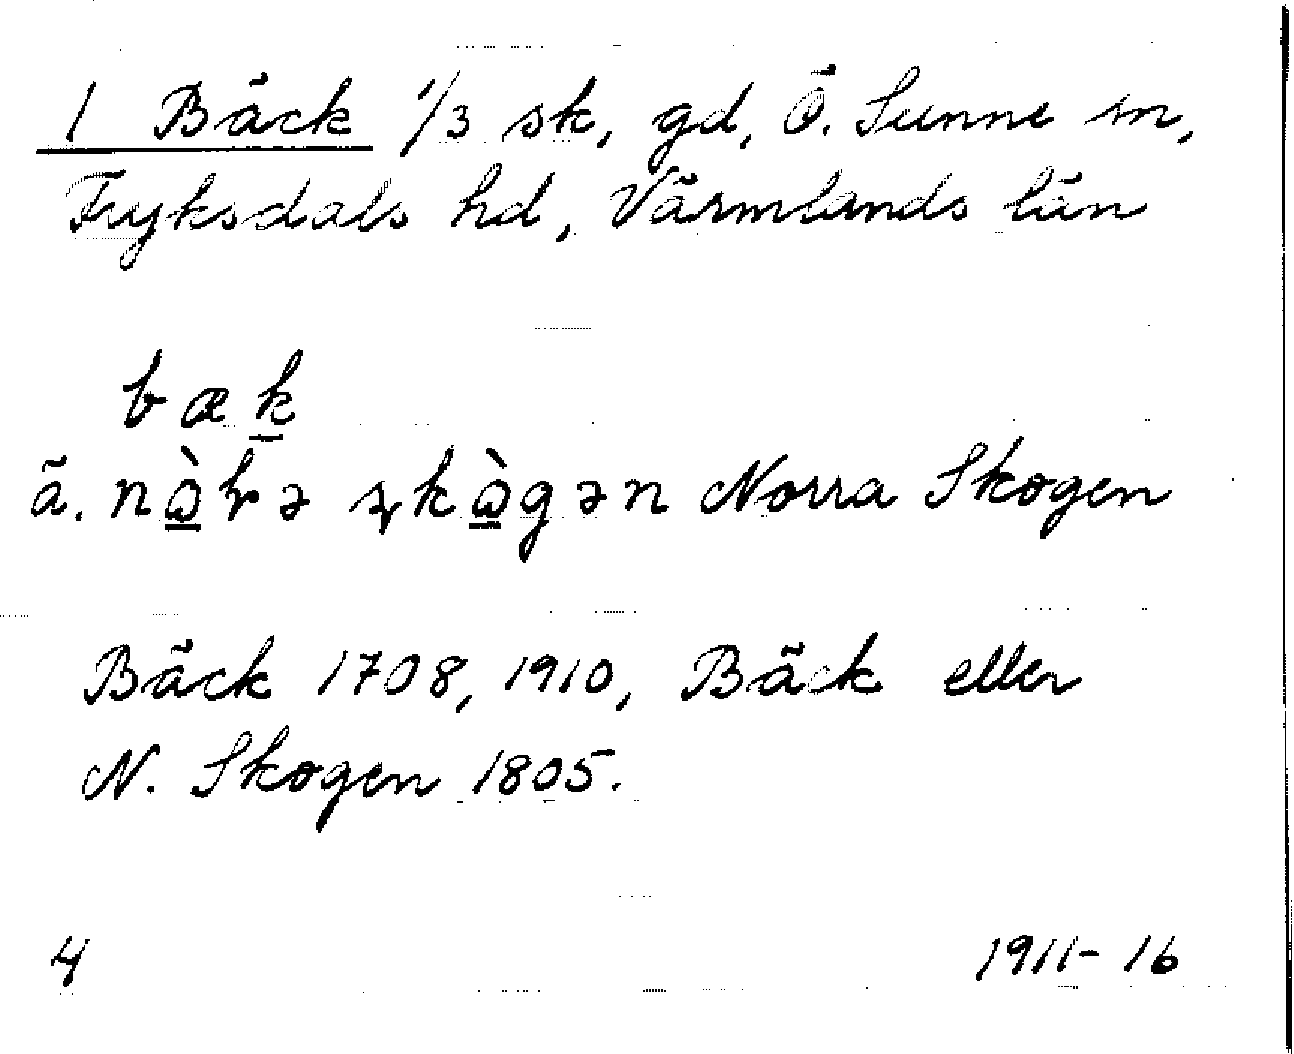 1 Bäck 1/3 sk, gd, Ö. Sunne sn,
Fryksdals hd, Värmlands län
bæk̲
ä. nɷ̲̀rə skɷ̲̀gən Norra Skogen
Bäck 1708, 1910, Bäck eller
N. Skogen 1805.
4 1911-16